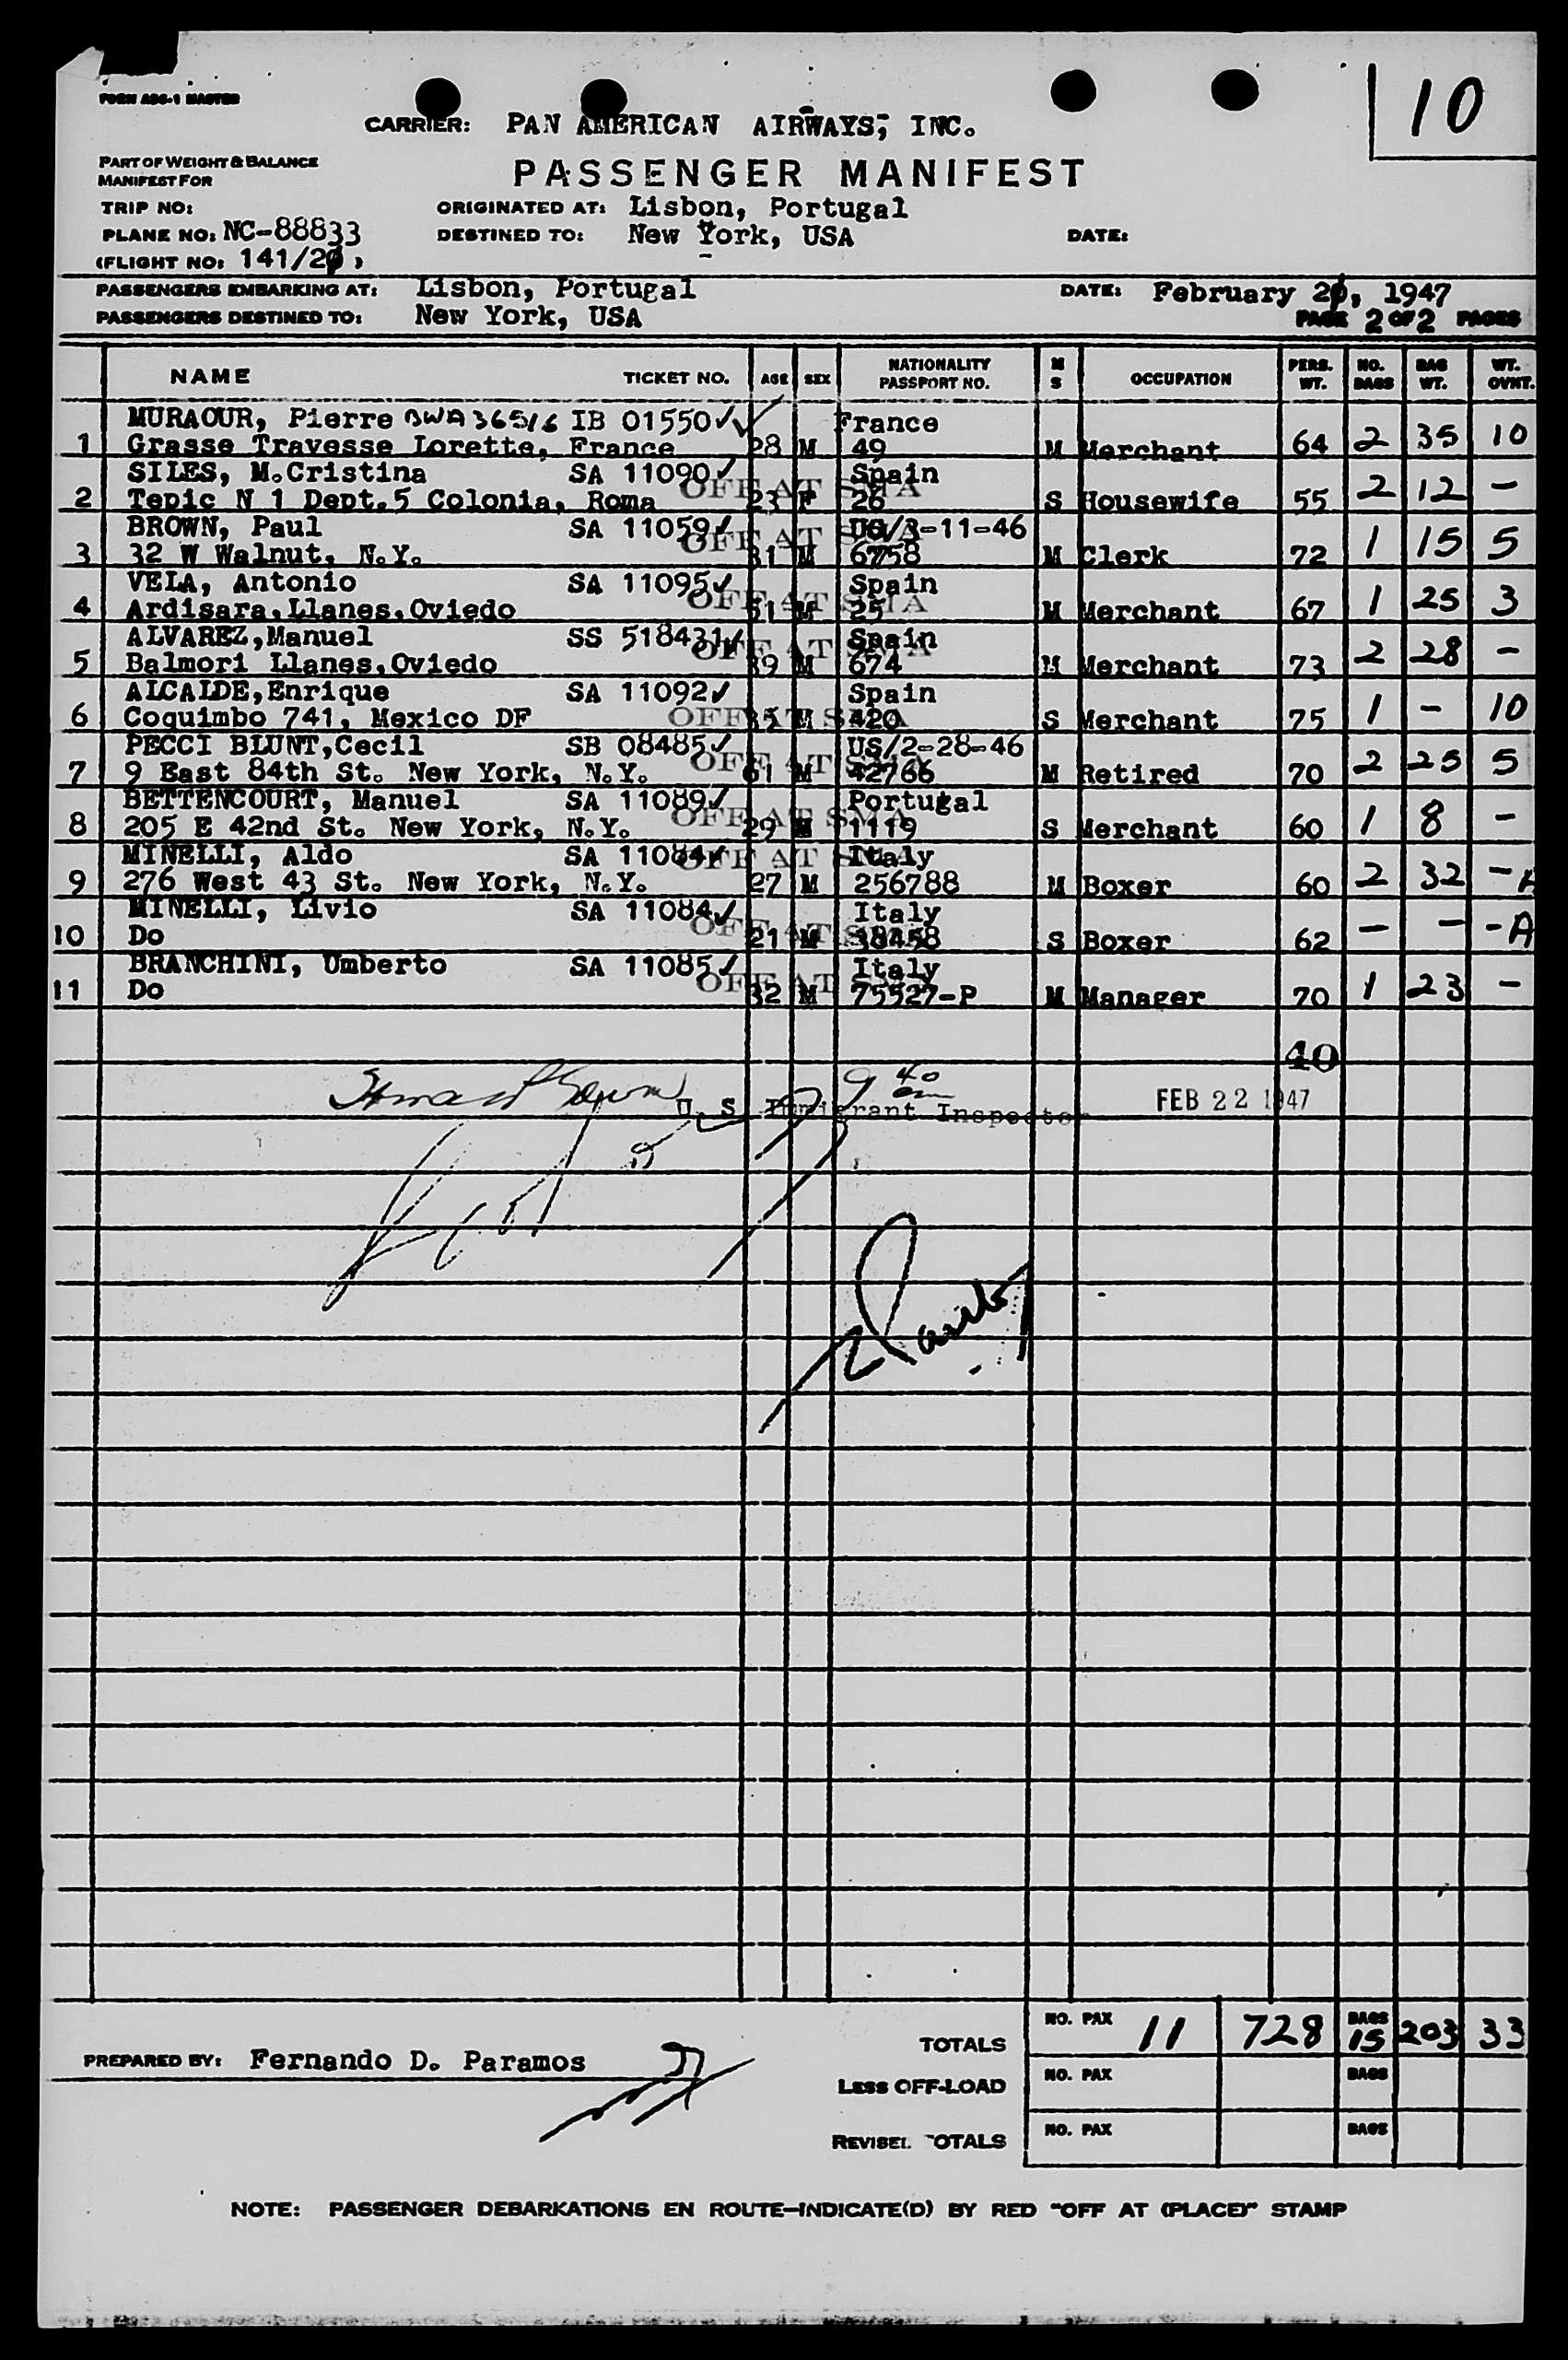 10
FORM ABG-1 MASTER
CARRIER: PAN AMERICAN AIRWAYS, INC.
PART OF WEIGHT & BALANCE
MANIFEST FOR
PASSENGER MANIFEST
TRIP NO:
ORIGINATED AT: Lisbon, Portugal
PLANE NO: NC-88833
DESTINED TO: New York, USA
DATE:
(FLIGHT NO: 141/20)
PASSENGERS EMBARKING AT: Lisbon, Portugal DATE: February 20, 1947
PASSENGERS DESTINED TO: New York, USA PAGE 2 OF 2 PAGES
NAME TICKET NO. AGE SEX NATIONALITY PASSPORT NO. M S OCCUPATION PERS. WT. NO. BAGS BAG WT. WT. OVNT.
MURAOUR, Pierre BWA 36516 IB 01550 France
1 Grasse Travesse Lorette, France 28 M 49 M Merchant 64 2 35 10
SILES, M.Cristina SA 11090 Spain
OFF AT SMA
2 Tepic N 1 Dept.5 Colonia, Roma 23 F 26 S Housewife 55 2 12 -
BROWN, Paul SA 11059 US/3-11-46
OFF AT SMA
3 32 W Walnut, N.Y. 31 M 6758 M Clerk 72 1 15 5
VELA, Antonio SA 11095 Spain
OFF AT SMA
4 Ardisara,Llanes,Oviedo 51 M 25 M Merchant 67 1 25 3
ALVAREZ,Manuel SS 518431 Spain
OFF AT SMA
5 Balmori Llanes,Oviedo 39 M 674 M Merchant 73 2 28 -
ALCALDE,Enrique SA 11092 Spain
OFF AT SMA
6 Coquimbo 741, Mexico DF 35 M 420 S Merchant 75 1 - 10
PECCI BLUNT,Cecil SB 08485 US/2-28-46
OFF AT SMA
7 9 East 84th St. New York, N.Y. 61 M 42766 M Retired 70 2 25 5
BETTENCOURT, Manuel SA 11089 Portugal
OFF AT SMA
8 205 E 42nd St. New York, N.Y. 29 M 1119 S Merchant 60 1 8 -
MINELLI, Aldo SA 11084 Italy
OFF AT SMA
9 276 West 43 St. New York, N.Y. 27 M 256788 M Boxer 60 2 32 - A
MINELLI, Livio SA 11084 Italy
OFF AT SMA
10 Do 21 M 38458 S Boxer 62 - - - A
BRANCHINI, Umberto SA 11085 Italy
OFF AT
11 Do 32 M 75527-P M Manager 70 1 23 -
40
9 40 am
U. S. Immigrant Inspector FEB 22 1947
TOTALS NO. PAX 11 728 BAGS 15 203 33
PREPARED BY: Fernando D. Paramos
LESS OFF-LOAD NO. PAX BAGS
REVISED TOTALS NO. PAX BAGS
NOTE: PASSENGER DEBARKATIONS EN ROUTE—INDICATE(D) BY RED "OFF AT (PLACE)" STAMP